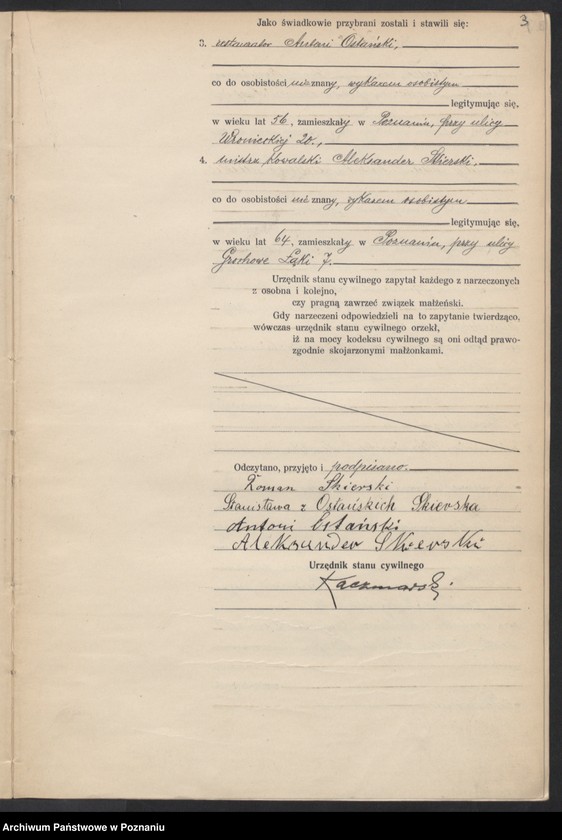 3
Jako świadkowie przybrani zostali i stawili się:
3. restaurator Antoni Ostański,
co do osobistości nie znany, wykazem osobistym
legitymując się,
w wieku lat 56, zamieszkały w Poznaniu, przy ulicy
Wronieckiej 20.,
4. mistrz kowalski Aleksander Skierski,
co do osobistości nie znany, wykazem osobistym
legitymując się,
w wieku lat 64, zamieszkały w Poznaniu, przy ulicy
Grochowe Łąki 7.
Urzędnik stanu cywilnego zapytał każdego z narzeczonych
z osobna i kolejno,
czy pragną zawrzeć związek małżeński.
Gdy narzeczeni odpowiedzieli na to zapytanie twierdząco,
wówczas urzędnik stanu cywilnego orzekł,
iż na mocy kodeksu cywilnego są oni odtąd prawo-
zgodnie skojarzonymi małżonkami.
Odczytano, przyjęto i podpisano.
Roman Skierski
Stanisława z Ostańskich Skierska
Antoni Ostański
Aleksander Skierski
Urzędnik stanu cywilnego
Kaczmarski
Archiwum Państwowe w Poznaniu